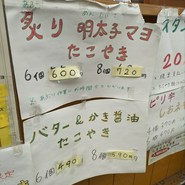 炙り 明太子マヨ
たこやき
6個 600 8個 720円
バター&かき醤油
たこやき
6個 640 8個
スタ
20
ピリ辛